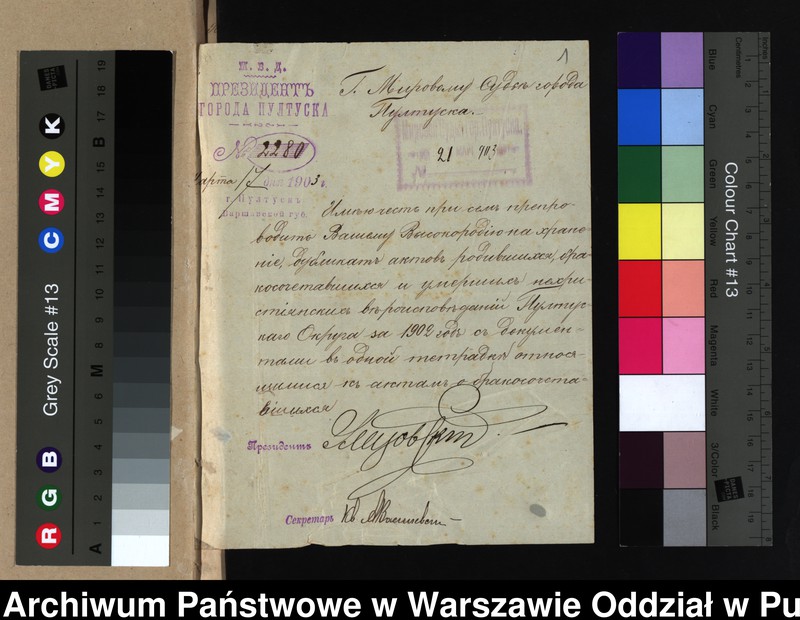 М. В. Д.
ПРЕЗИДЕНТЪ
ГОРОДА ПУЛТУСКА
№ 2280
Марта 17 дня 1903 г.
г. Пултускъ
Варшавской губ.
1
Г. Мировому Судьѣ города
Пултуска.
21 903
Имѣю честь при семъ препро-
водить Вашему Высокородію на хране-
ніе, дубликатъ актовъ родившихся, бра-
косочетавшихся и умершихъ нехри-
стіянскихъ вѣроисповѣданій Пултус-
каго Округа за 1902 годъ съ докумен-
тами въ одной тетради относя-
щимися къ актамъ о бракосочета-
вшихся
Президентъ
Секретарь
Grey Scale #13
R G B
C M Y K
A 1 2 3 4 5 6 M 8 9 10 11 12 13 14 15 B 17 18 19
Colour Chart #13
Blue
Cyan
Green
Yellow
Red
Magenta
White
3/Color
Black
Centimetres
Inches
DANES PICTA
DANES PICTA
Archiwum Państwowe w Warszawie Oddział w Pu